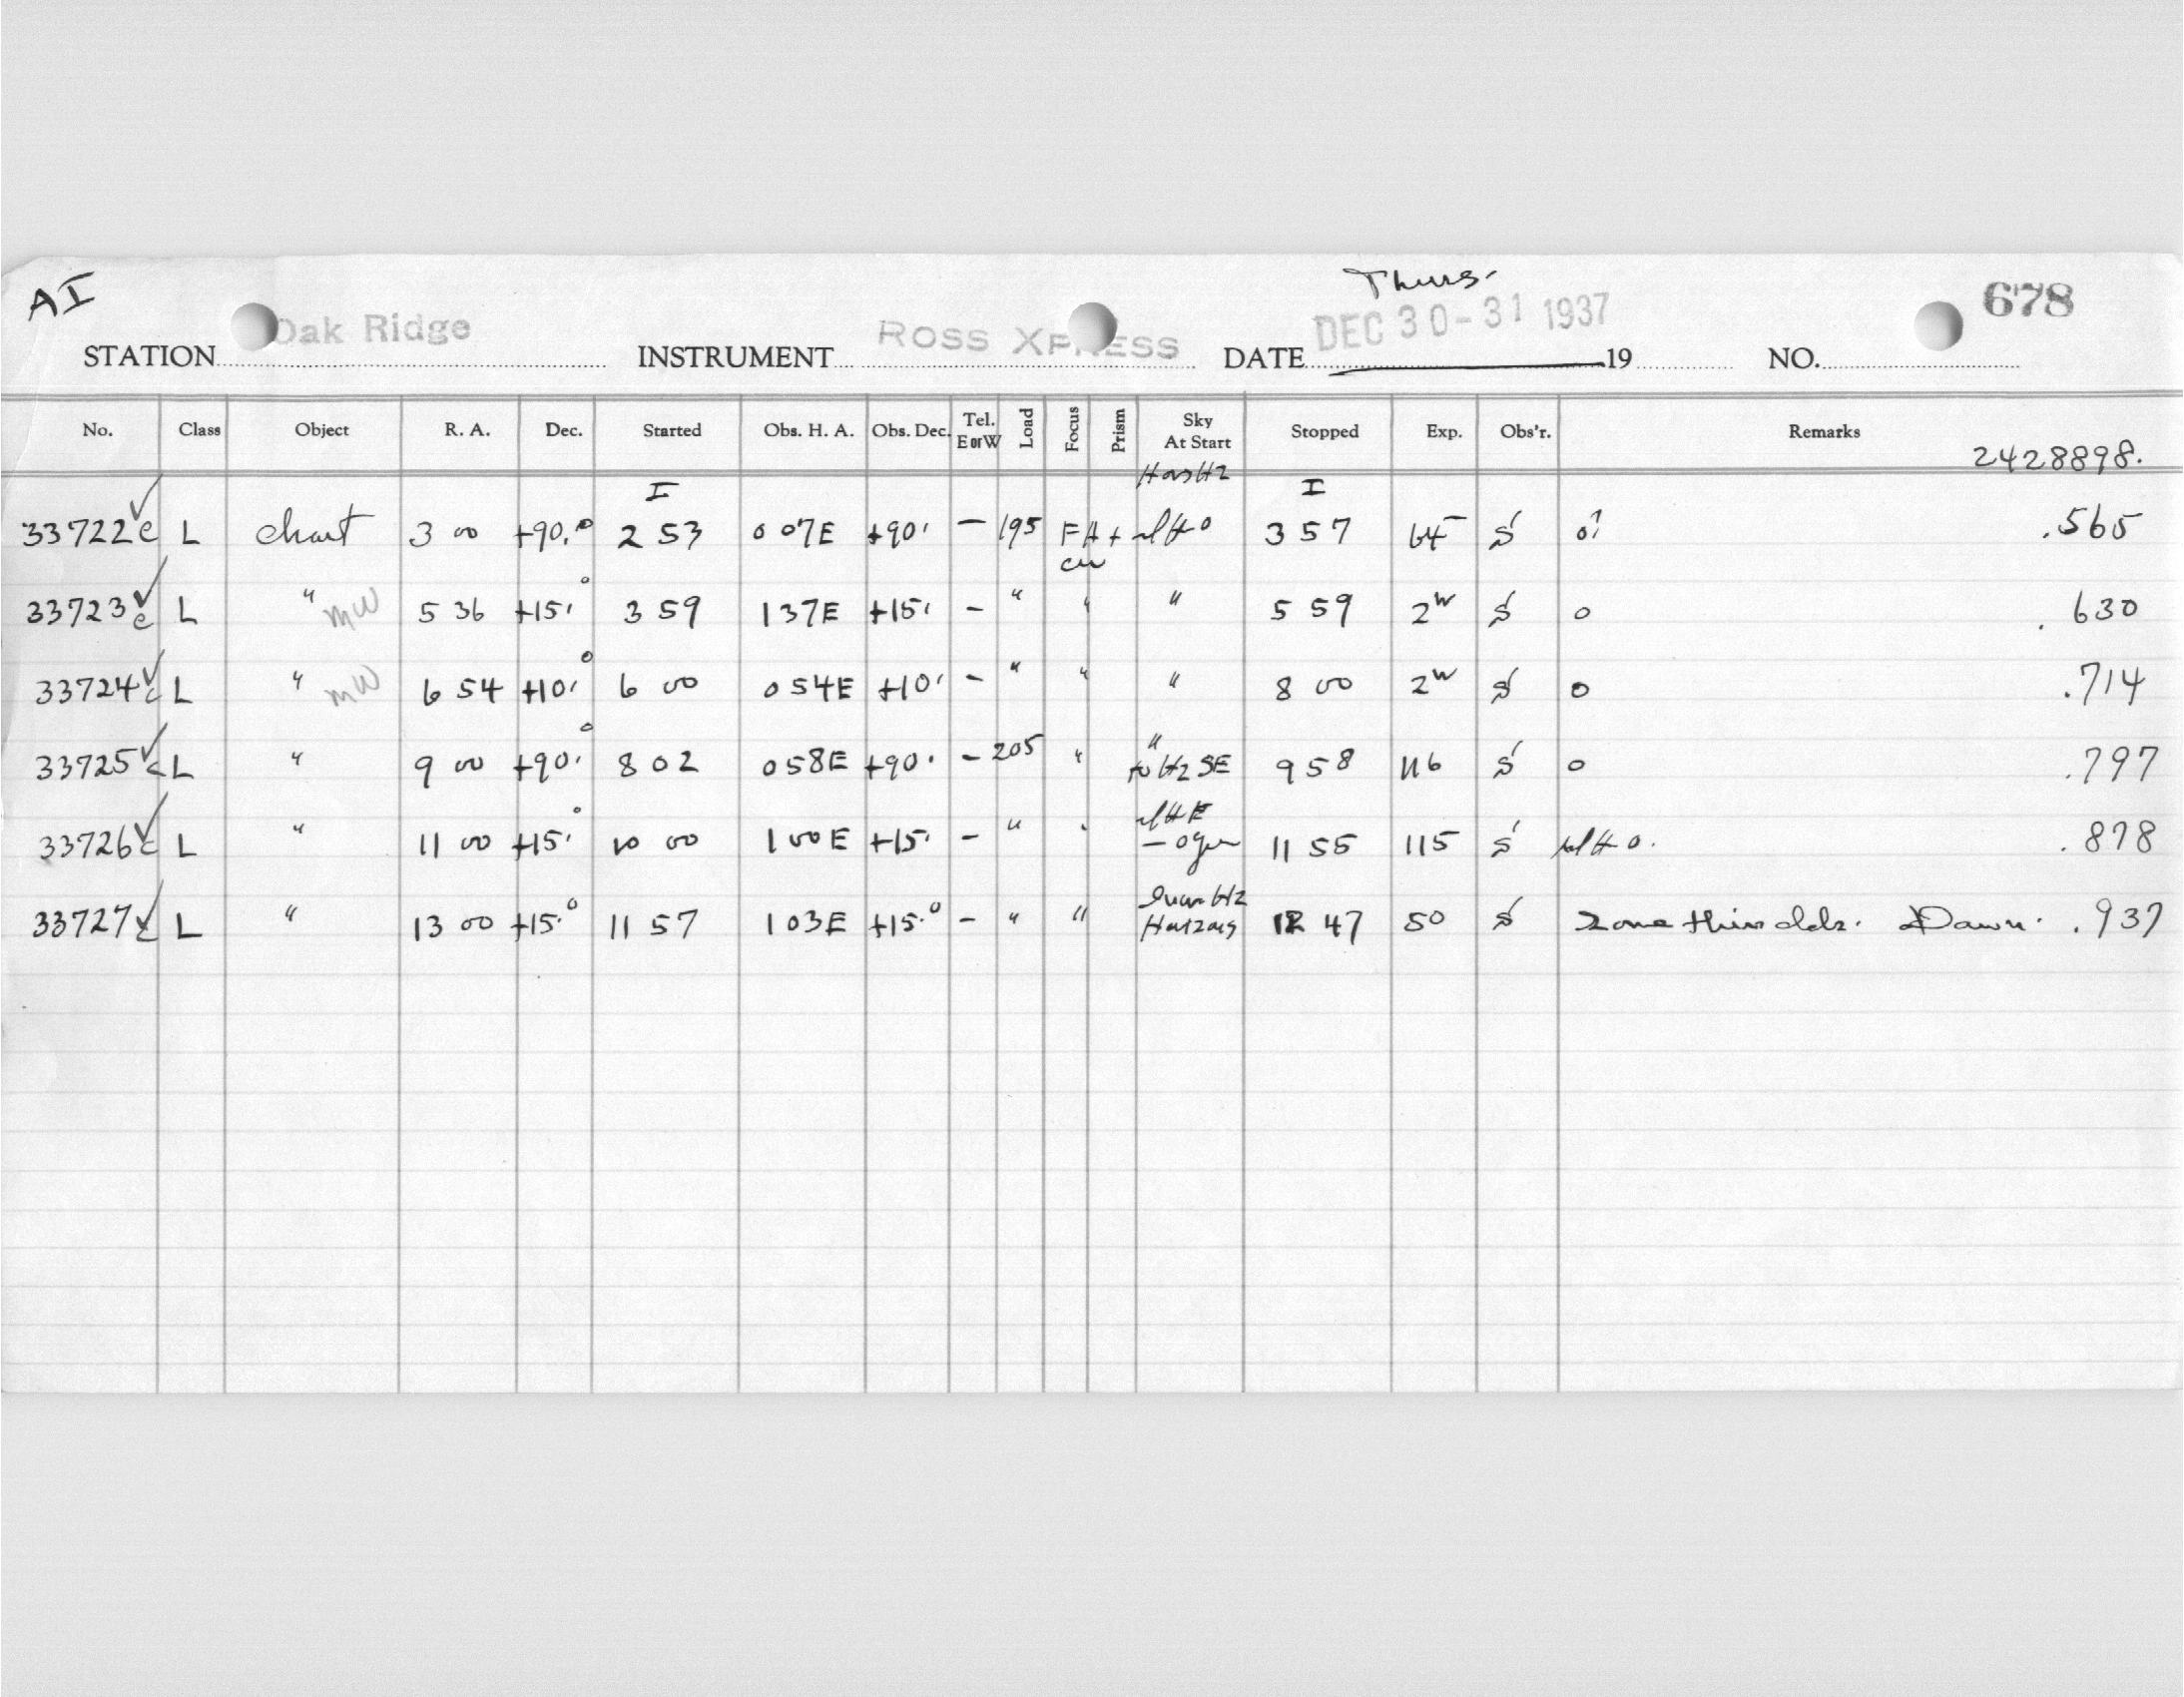 AI
Thurs.
678
STATION Oak Ridge INSTRUMENT ROSS XPRESS DATE DEC 30-31 1937 19 NO.
No. Class Object R. A. Dec. Started Obs. H. A. Obs. Dec. Tel. E or W Load Focus Prism Sky At Start Stopped Exp. Obs'r. Remarks
2428898.
I I
33722c L chart 3 00 +90.° 2 53 0 07E +90. – 195 FA + 3 57 64 S 0? .565
33723c L " MW 5 36 +15.° 3 59 1 37E +15. – " " " 5 59 2 S 0 .630
33724c L " MW 6 54 +10.° 6 00 0 54E +10. – " " " 8 00 2 S 0 .714
33725c L " 9 00 +90.° 8 02 0 58E +90. – 205 " " to Hz SE 9 58 116 S 0 .797
33726c L " 11 00 +15.° 10 00 1 00E +15. – " " 11 55 115 S .878
33727c L " 13 00 +15.° 11 57 1 03E +15.° – " " 12 47 50 S Some thin clds. Dawn. .937